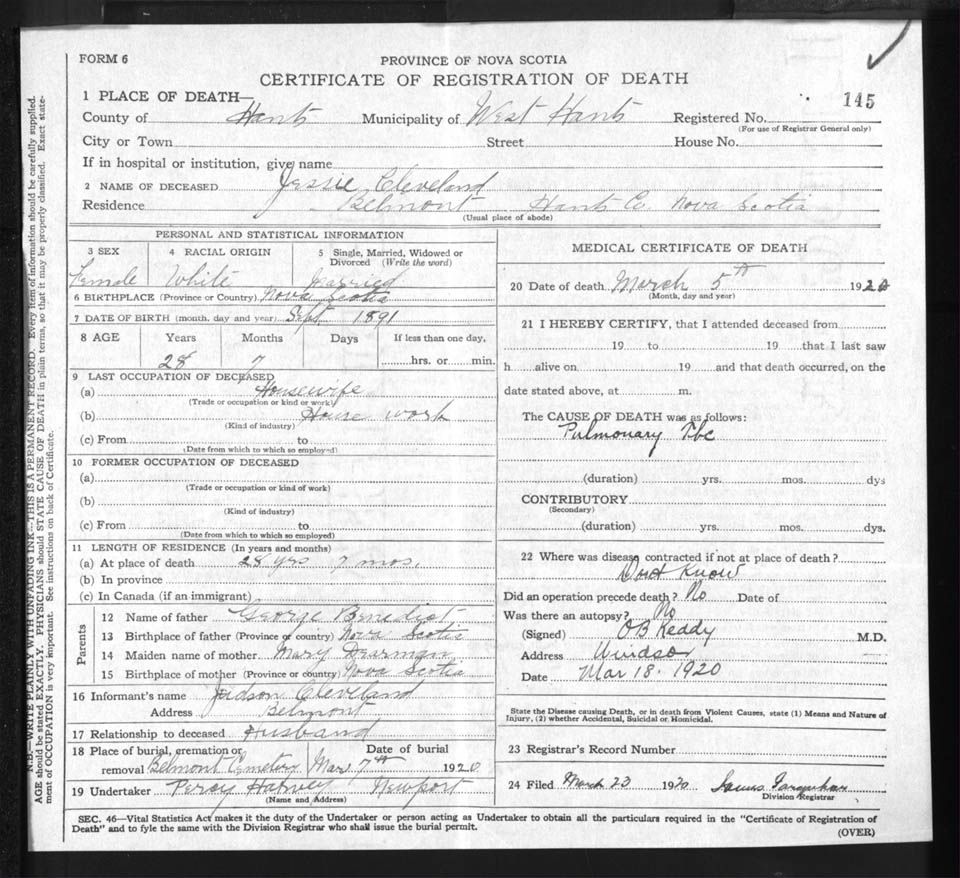 FORM 6
PROVINCE OF NOVA SCOTIA
CERTIFICATE OF REGISTRATION OF DEATH
1 PLACE OF DEATH—
145
County of Hants Municipality of West Hants Registered No.
(For use of Registrar General only)
City or Town Street House No.
If in hospital or institution, give name
2 NAME OF DECEASED Jessie Cleveland
Residence Belmont Hants Co. Nova Scotia
(Usual place of abode)
PERSONAL AND STATISTICAL INFORMATION
3 SEX 4 RACIAL ORIGIN 5 Single, Married, Widowed or
Divorced (Write the word)
Female White Married
6 BIRTHPLACE (Province or Country) Nova Scotia
7 DATE OF BIRTH (month, day and year) Sept 1891
8 AGE Years Months Days If less than one day,
28 7 hrs. or min.
9 LAST OCCUPATION OF DECEASED
(a) Housewife
(Trade or occupation or kind or work)
(b) House work
(Kind of industry)
(c) From to
(Date from which to which so employed)
10 FORMER OCCUPATION OF DECEASED
(a)
(Trade or occupation or kind of work)
(b)
(Kind of industry)
(c) From to
(Date from which to which so employed)
11 LENGTH OF RESIDENCE (In years and months)
(a) At place of death 28 yrs 7 mos.
(b) In province
(c) In Canada (if an immigrant)
Parents
12 Name of father George Benedict
13 Birthplace of father (Province or country) Nova Scotia
14 Maiden name of mother Mary
15 Birthplace of mother (Province or country) Nova Scotia
16 Informant's name Judson Cleveland
Address Belmont
17 Relationship to deceased Husband
18 Place of burial, cremation or Date of burial
removal Belmont Cemetery Mar 7th 1920
19 Undertaker Percy Harvey Newport
(Name and Address)
MEDICAL CERTIFICATE OF DEATH
20 Date of death March 5th 1920
(Month, day and year)
21 I HEREBY CERTIFY, that I attended deceased from
19 to 19 that I last saw
h alive on 19 and that death occurred, on the
date stated above, at m.
The CAUSE OF DEATH was as follows:
Pulmonary Tbc
(duration) yrs. mos. dys
CONTRIBUTORY
(Secondary)
(duration) yrs. mos. dys.
22 Where was disease contracted if not at place of death?
Dont Know
Did an operation precede death? No Date of
Was there an autopsy? No
(Signed) O B Keddy M.D.
Address Windsor
Date Mar 18. 1920
State the Disease causing Death, or in death from Violent Causes, state (1) Means and Nature of
Injury, (2) whether Accidental, Suicidal or Homicidal.
23 Registrar's Record Number
24 Filed March 23 1920 James Farquhar
Division Registrar
SEC. 46—Vital Statistics Act makes it the duty of the Undertaker or person acting as Undertaker to obtain all the particulars required in the "Certificate of Registration of
Death" and to fyle the same with the Division Registrar who shall issue the burial permit.
(OVER)
N.B.—WRITE PLAINLY WITH UNFADING INK—THIS IS A PERMANENT RECORD. Every item of information should be carefully supplied.
AGE should be stated EXACTLY. PHYSICIANS should STATE CAUSE OF DEATH in plain terms, so that it may be properly classified. Exact state-
ment of OCCUPATION is very important. See instructions on back of Certificate.